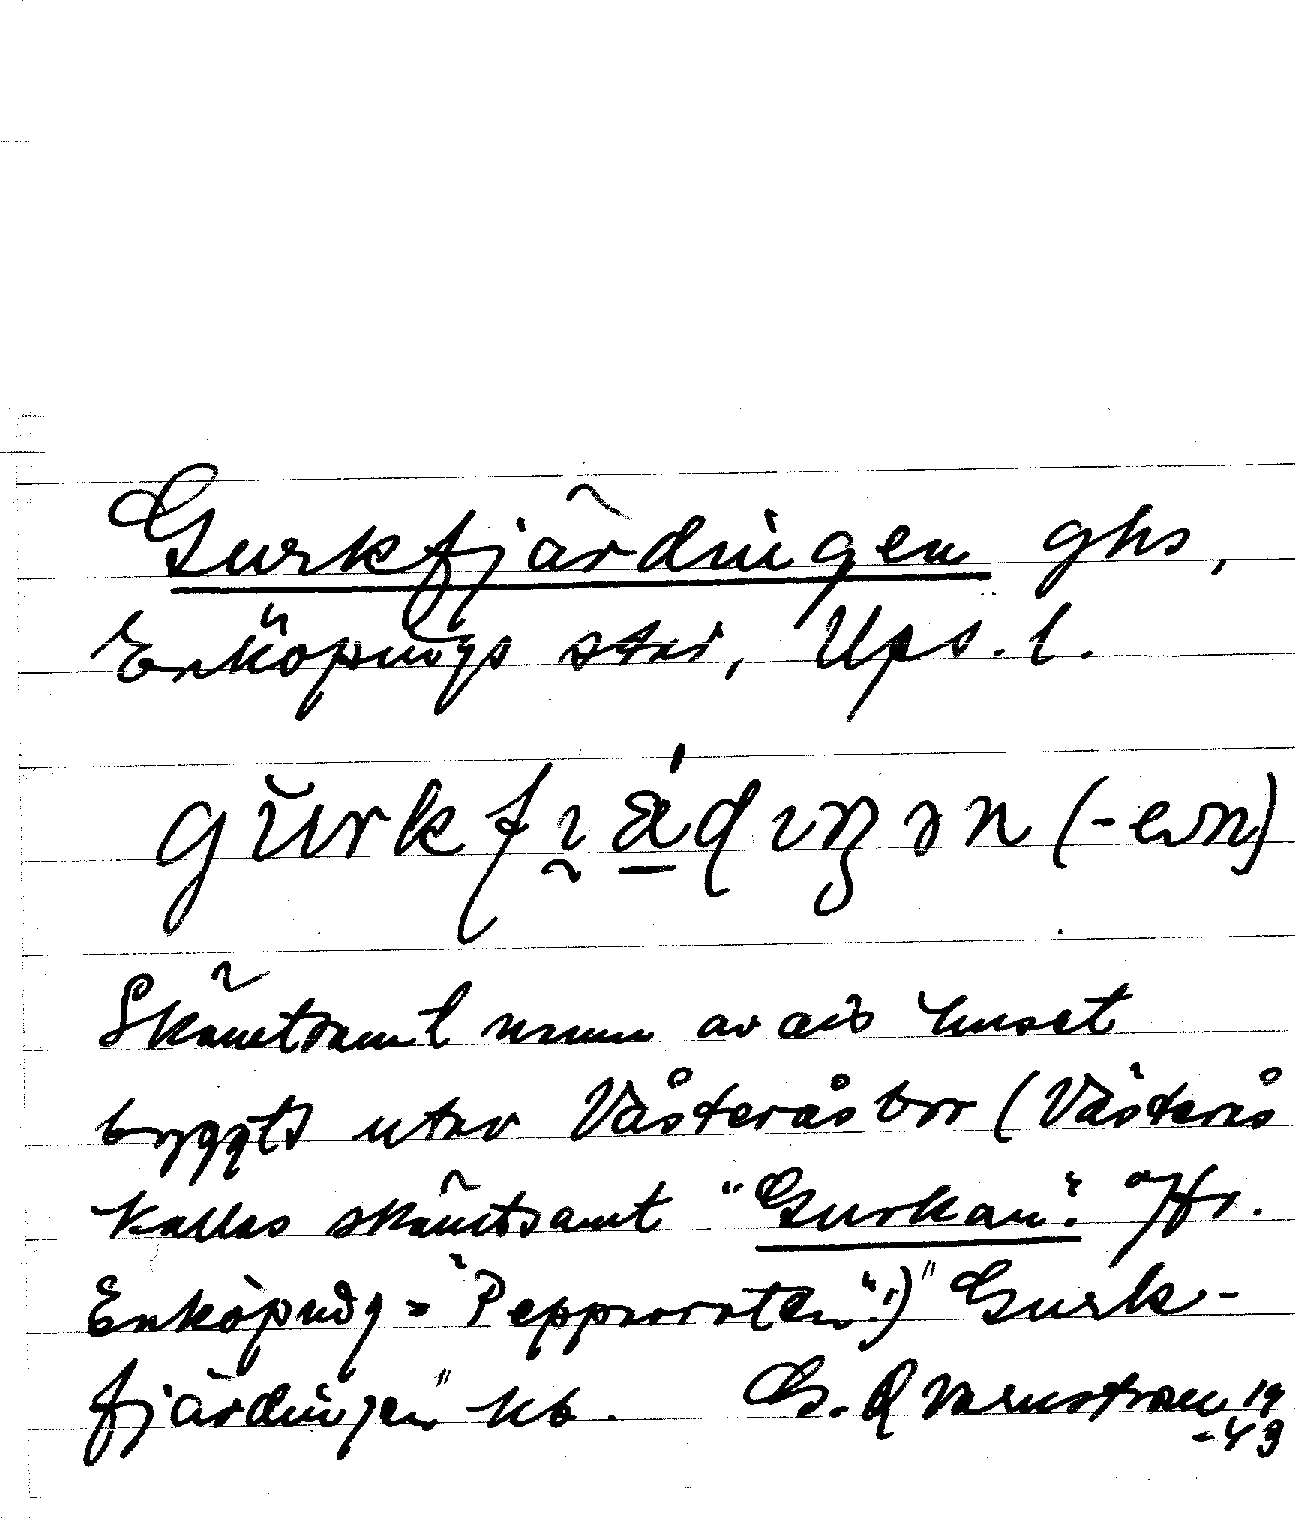 Gurkfjärdingen ghs,
Enköpings stad, Ups. l.
gŭrkfı̰ǽḍıŋən (-en)
Skämtsamt namn av ett huset
byggts utav Västeråsbor (Västerås
kallas skämtsamt "Gurkan". Jfr.
Enköping = "Pepparroten".) "Gurk-
fjärdingen"
19
-43